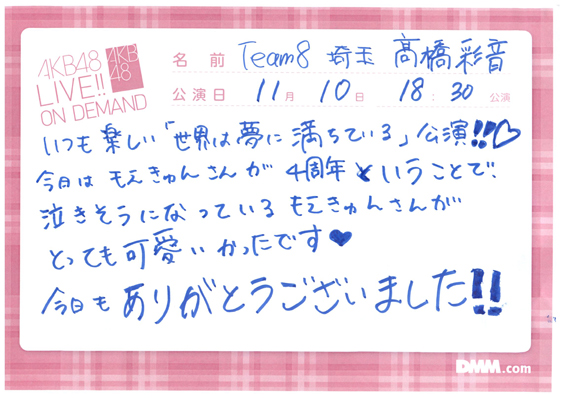 AKB48
LIVE!!
ON DEMAND
AKB
48
名前 Team8 埼玉 髙橋彩音
公演日 11月 10日 18:30 公演
いつも楽しい「世界は夢に満ちている」公演!!♡
今日は もえきゅんさんが 4周年ということで、
泣きそうになっている もえきゅんさんが
とっても可愛いかったです♥
今日も ありがとうございました!!
DMM.com